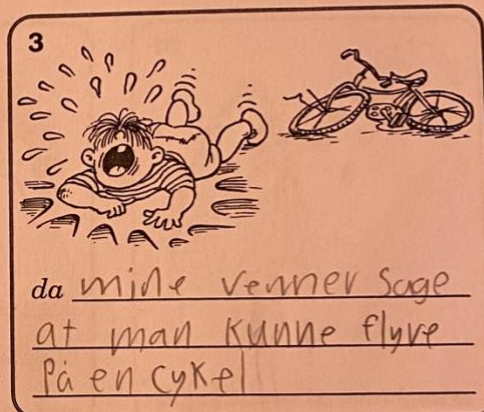 3
da mine venner Sage
at man kunne flyve
På en cykel